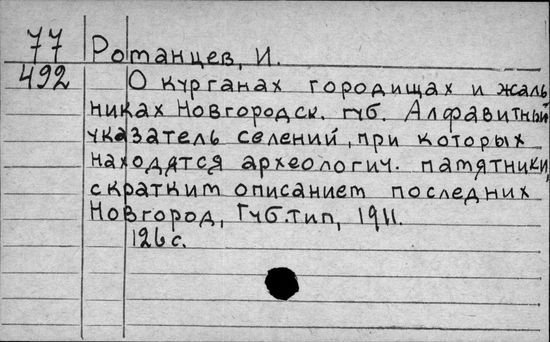 77 Романцев, И.
492 О курганах городищах и жаль
никах Новгородск. губ. Алфавитный
указатель селений, при которых
находятся археологич. памятники,
с кратким описанием последних
Новгород, Губ. тип, 1911.
126 с.